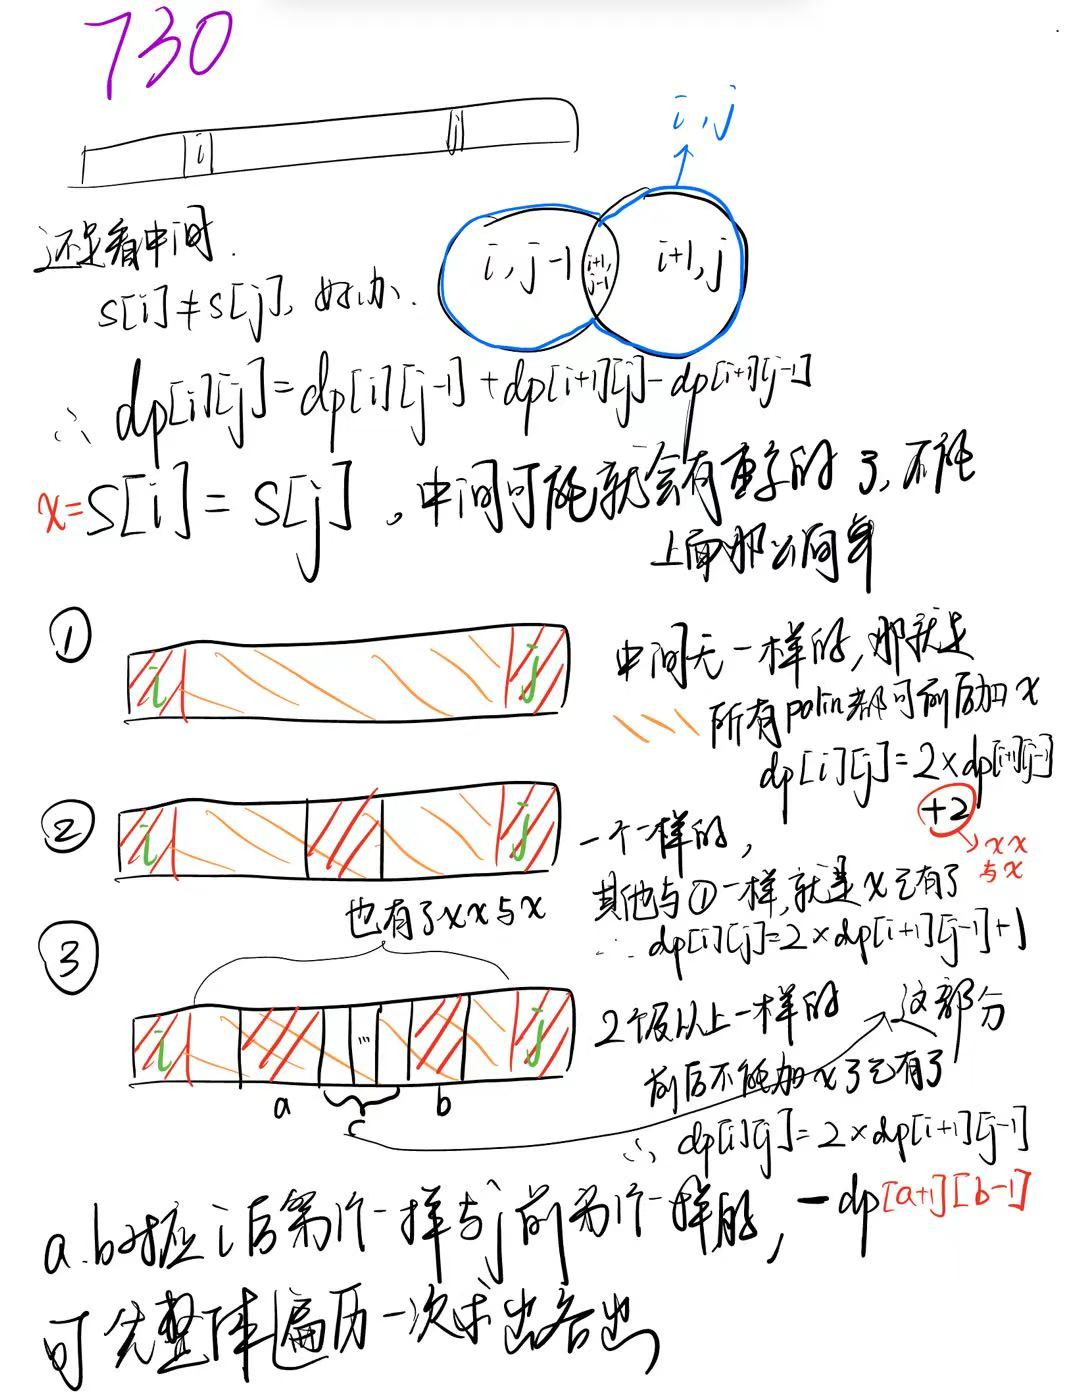 730
i j
i,j
还是看中间.
i,j-1 i+1,j-1 i+1,j
S[i]≠S[j],好办.
∴ dp[i][j]=dp[i][j-1]+dp[i+1][j]-dp[i+1][j-1]
x=S[i]=S[j],中间可能就会有重复的了,不能
上面那么简单
① i j 中间无一样的,那就是
所有palin都可前后加x
dp[i][j]=2×dp[i+1][j-1]
+2
→xx
与x
② i j 一个一样的,
其他与①一样,就是x已有了
∴ dp[i][j]=2×dp[i+1][j-1]+1
也有了xx与x
③ i ... j 2个及以上一样的 这部分
前后不能加x了已有了
a c b
∴ dp[i][j]=2×dp[i+1][j-1]
-dp[a+1][b-1]
a.b对应i后第1个一样与j前第1个一样的,
可先整体遍历一次求出